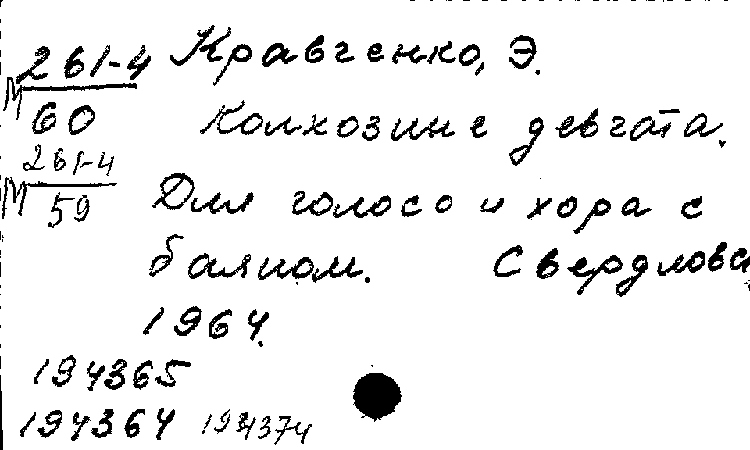 М 261-4 Кравченко, Э.
60 Колхозные девчата.
261-4
М 59 Для голоса и хора с
баяном. Свердловс
1964.
194365
194364